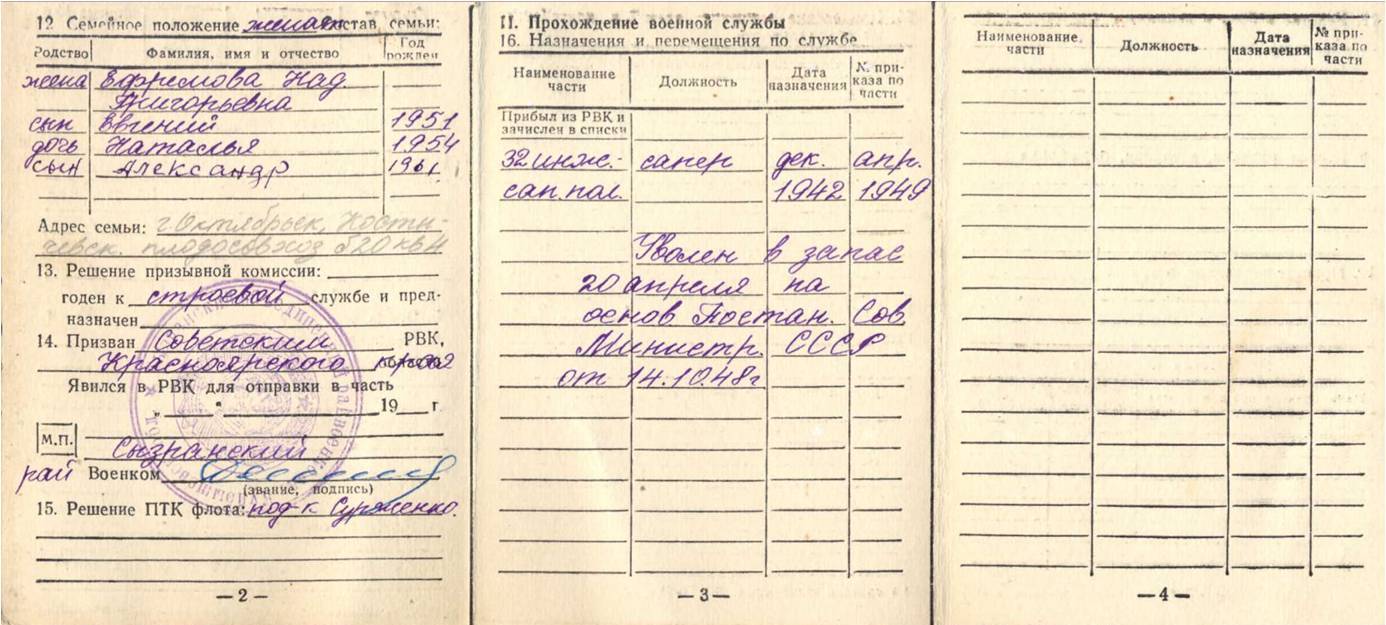 12. Семейное положение женат состав семьи:
Родство Фамилия, имя и отчество Год рожден.
жена Над.
Григорьевна
сын Евгений 1951
дочь Наталья 1954
сын Александр 1961
Адрес семьи: г Октябрьск, Косты-
чевск. плодосовхоз д20 кв4
13. Решение призывной комиссии:
годен к строевой службе и пред-
назначен
14. Призван Советским РВК,
Красноярского края
Явился в РВК для отправки в часть
„ “ 19 г.
М.П.
Сызранский
рай Военком
(звание, подпись)
15. Решение ПТК флота: под-к
— 2 —
II. Прохождение военной службы
16. Назначения и перемещения по службе
Наименование части Должность Дата назначения № при-каза по части
Прибыл из РВК и
зачислен в списки
32 инж.- сапер дек. апр.
сап. пол. 1942 1949
Уволен в запас
20 апреля на
основ. Постан. Сов.
Министр. СССР
от 14.10.48г
— 3 —
Наименование части Должность Дата назначения № при-каза по части
— 4 —